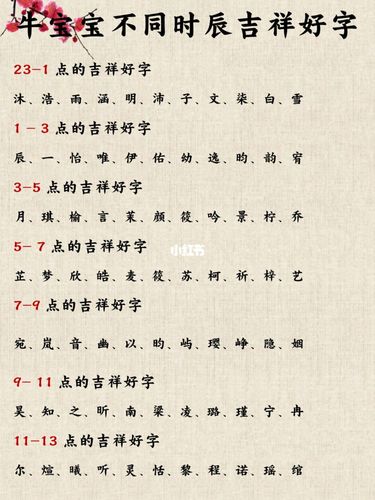 牛宝宝不同时辰吉祥好字
23-1 点的吉祥好字
沐、浩、雨、涵、明、沛、子、文、柒、白、雪
1-3 点的吉祥好字
辰、一、怡、唯、伊、佑、幼、逸、昀、韵、宥
3-5 点的吉祥好字
月、琪、榆、言、茉、颜、筱、吟、景、柠、乔
小红书
5-7 点的吉祥好字
芷、梦、欣、皓、麦、筱、苏、柯、祈、梓、艺
7-9 点的吉祥好字
宛、岚、音、幽、以、昀、屿、璎、峥、隐、姻
9-11 点的吉祥好字
昊、知、之、昕、南、梁、凌、璐、瑾、宁、冉
11-13 点的吉祥好字
尔、煊、曦、听、灵、恬、黎、程、诺、瑶、绾